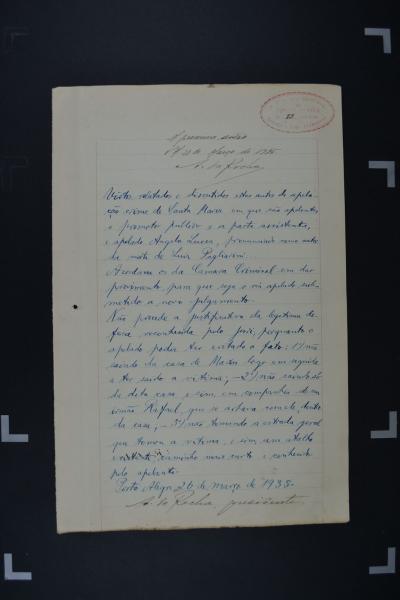 de Março de 1935
A. da Rocha
Vistos, relatados e discutidos estes autos de apela-
ção crime de Santa Maria em que são apelantes
o promotor publico e a parte assistente,
e apelado Angelo Lucca, pronunciado como autor
da morte de Luiz Pagliarini.
Acordam os da Camara Criminal em dar
provimento para que seja o réu apelado sub-
metido a novo julgamento.
Não procede a justificativa da legitima de-
fesa reconhecida pelo juri, porquanto o
apelado podia ter evitado o fato: 1º) não
saindo da casa de logo em seguida
a ter saido a vitima; - 2º) não saindo só
de dita casa e sim em companhia de seu
irmão Rafael, que se achava dentro
da casa; - 3º) não tomando a estrada geral
que tomou a vitima, e sim um atalho
caminho mais curto e conhecido
pelo apelante.
Porto Alegre, 26 de março de 1935.
A. da Rocha presidente